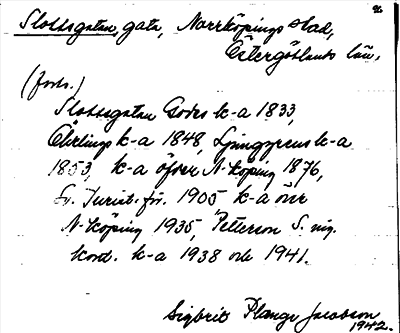 Slottsgatan, gata, Norrköpings stad,
Östergötlands län.
(forts.)
Slottsgatan Godes k-a 1833,
k-a 1848, Ljunggrens k-a
1853, k-a öfver N-köping 1876,
Sv. Turist.för. 1905 k-a över
N-köping 1935, Petterson S. sig.
kond. k-a 1938 och 1941.
Sigbrit Plange Jacobson
1942.